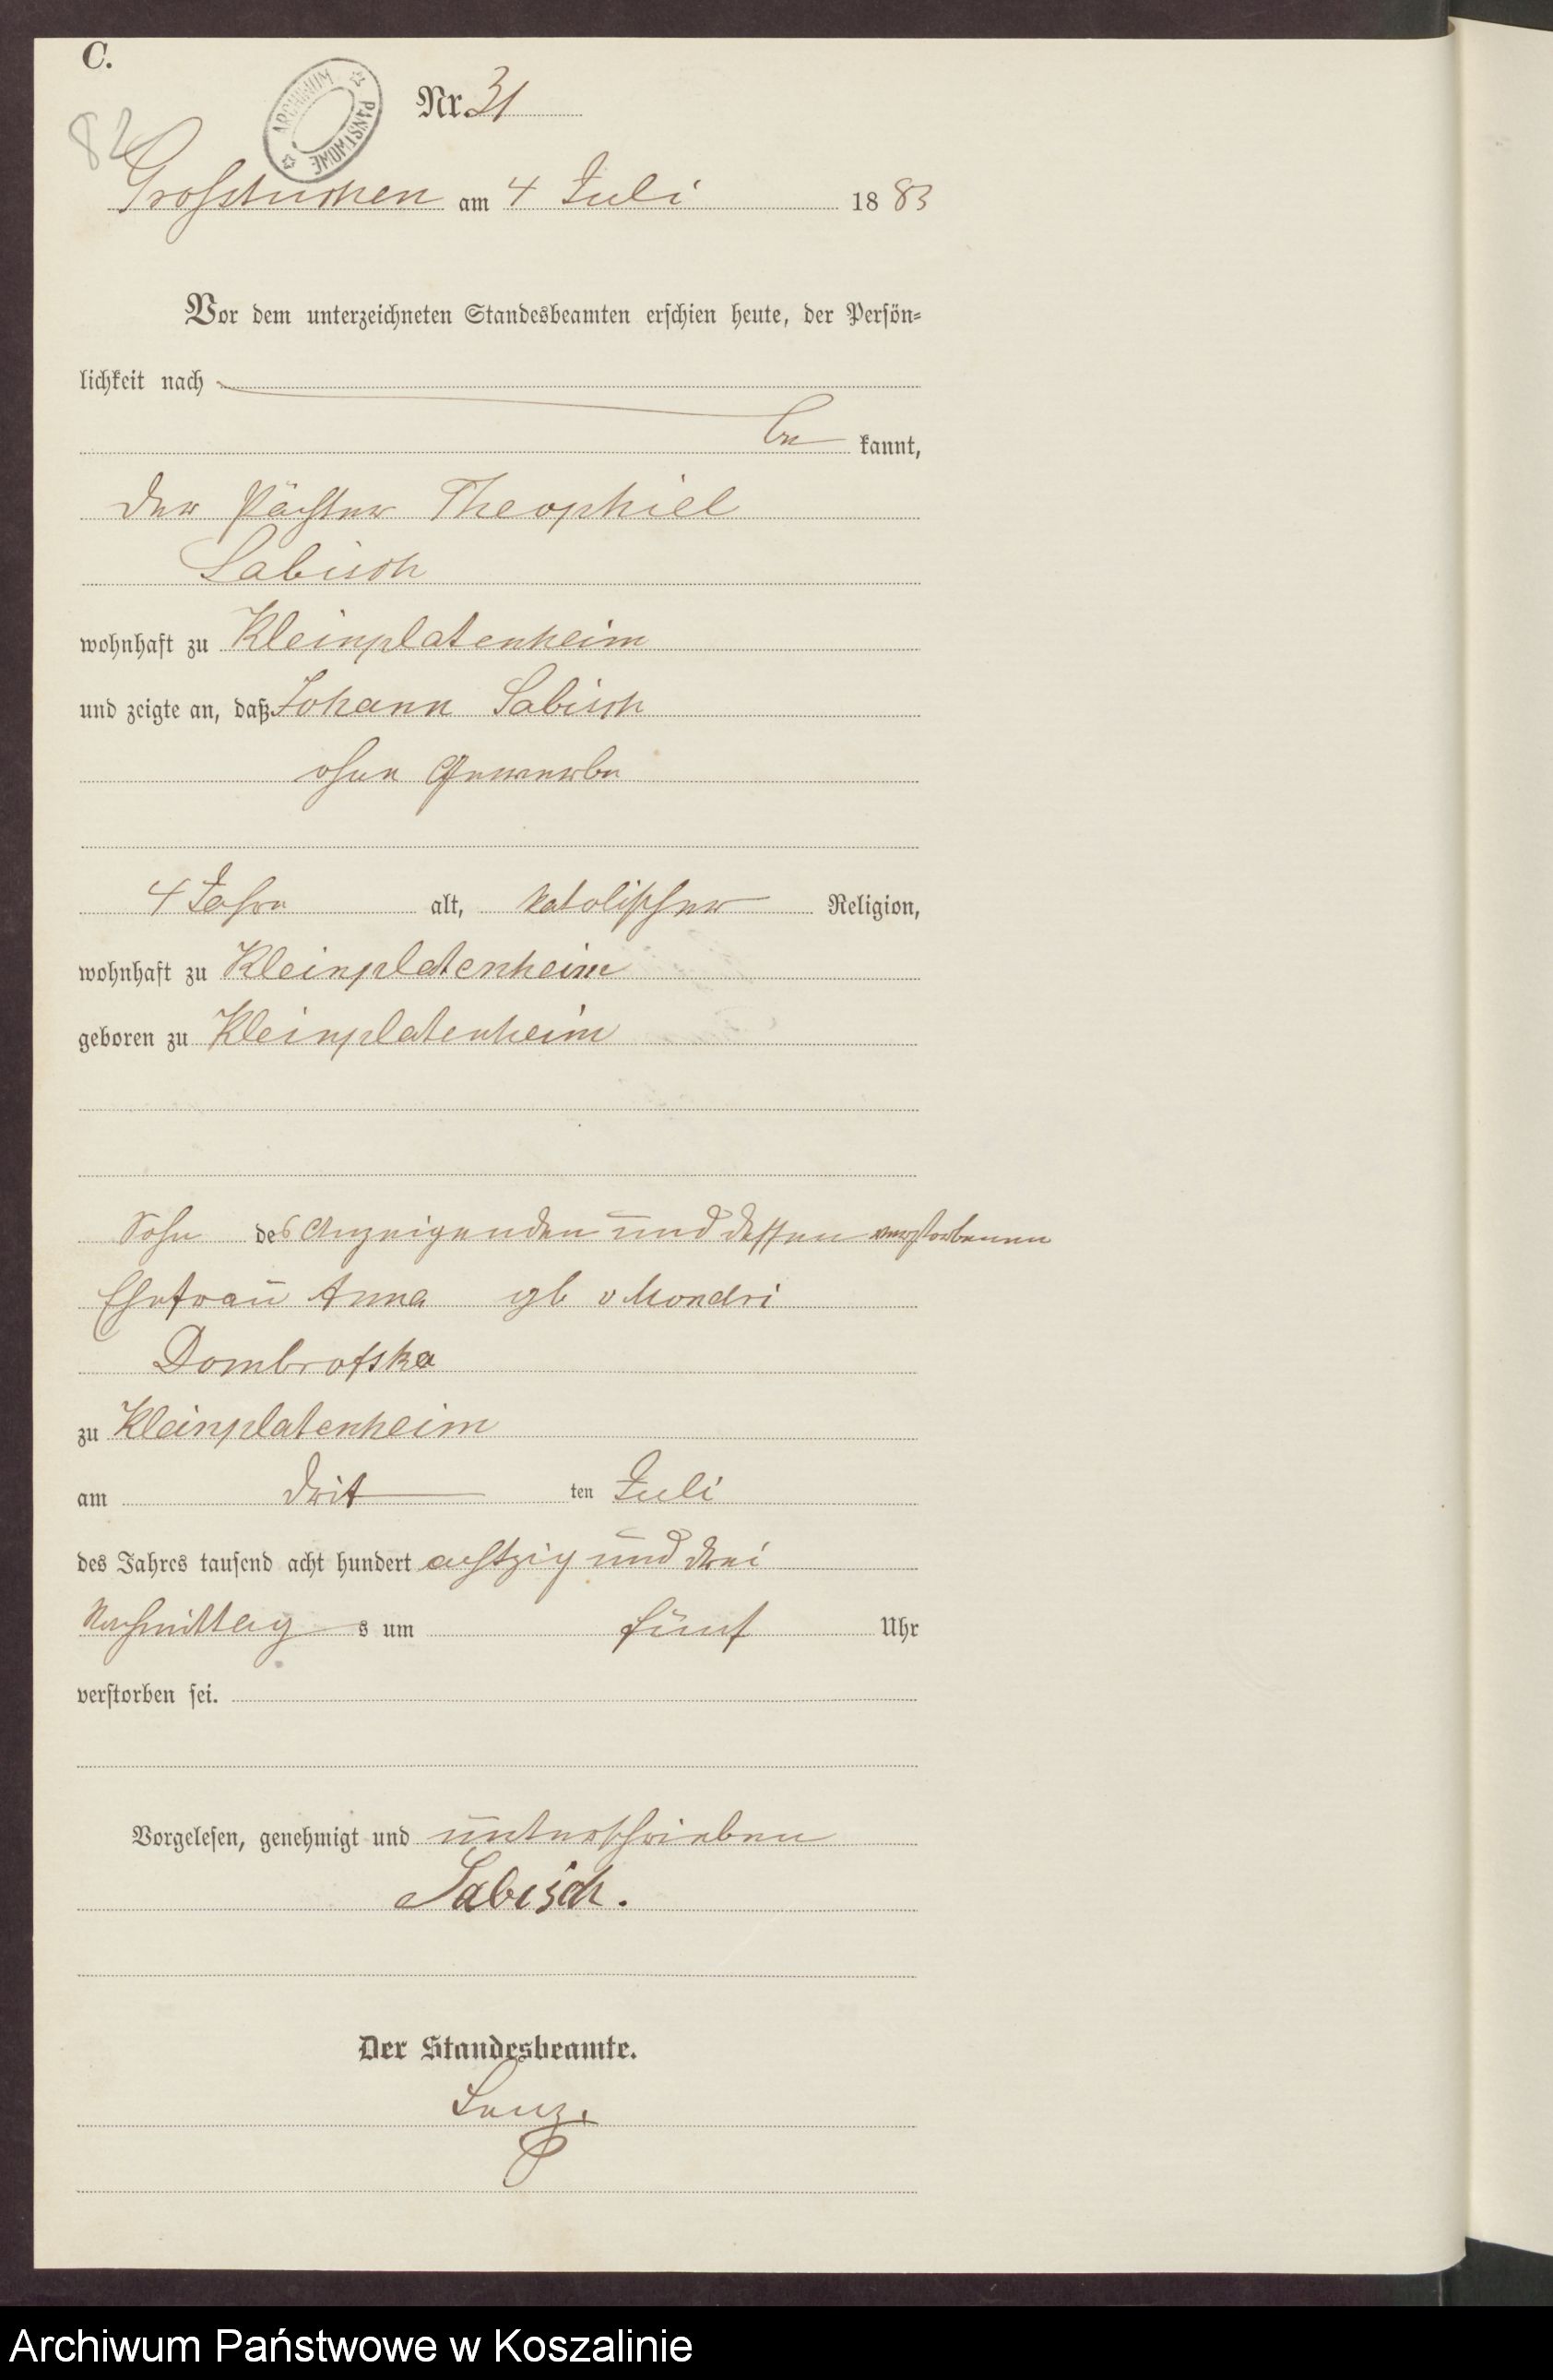 C.
ARCHIWUM PAŃSTWOWE
Nr. 31
82
Großtuchen am 4 Juli 1883
Vor dem unterzeichneten Standesbeamten erschien heute, der Persön-
lichkeit nach
be kannt,
der Pächter Theophiel
Sabisch
wohnhaft zu Kleinplatenheim
und zeigte an, daß Johann Sabisch
ohne Gewerbe
4 Jahre alt, katolischer Religion,
wohnhaft zu Kleinplatenheim
geboren zu Kleinplatenheim
Sohn des Anzeigenden und dessen verstorbenen
Ehefrau Anna gb v Mondri
Dombrofska
zu Kleinplatenheim
am drit ten Juli
des Jahres tausend acht hundert achtzig und drei
Nachmittag s um fünf Uhr
verstorben sei.
Vorgelesen, genehmigt und unterschrieben
Sabisch.
Der Standesbeamte.
Lenz.
Archiwum Państwowe w Koszalinie